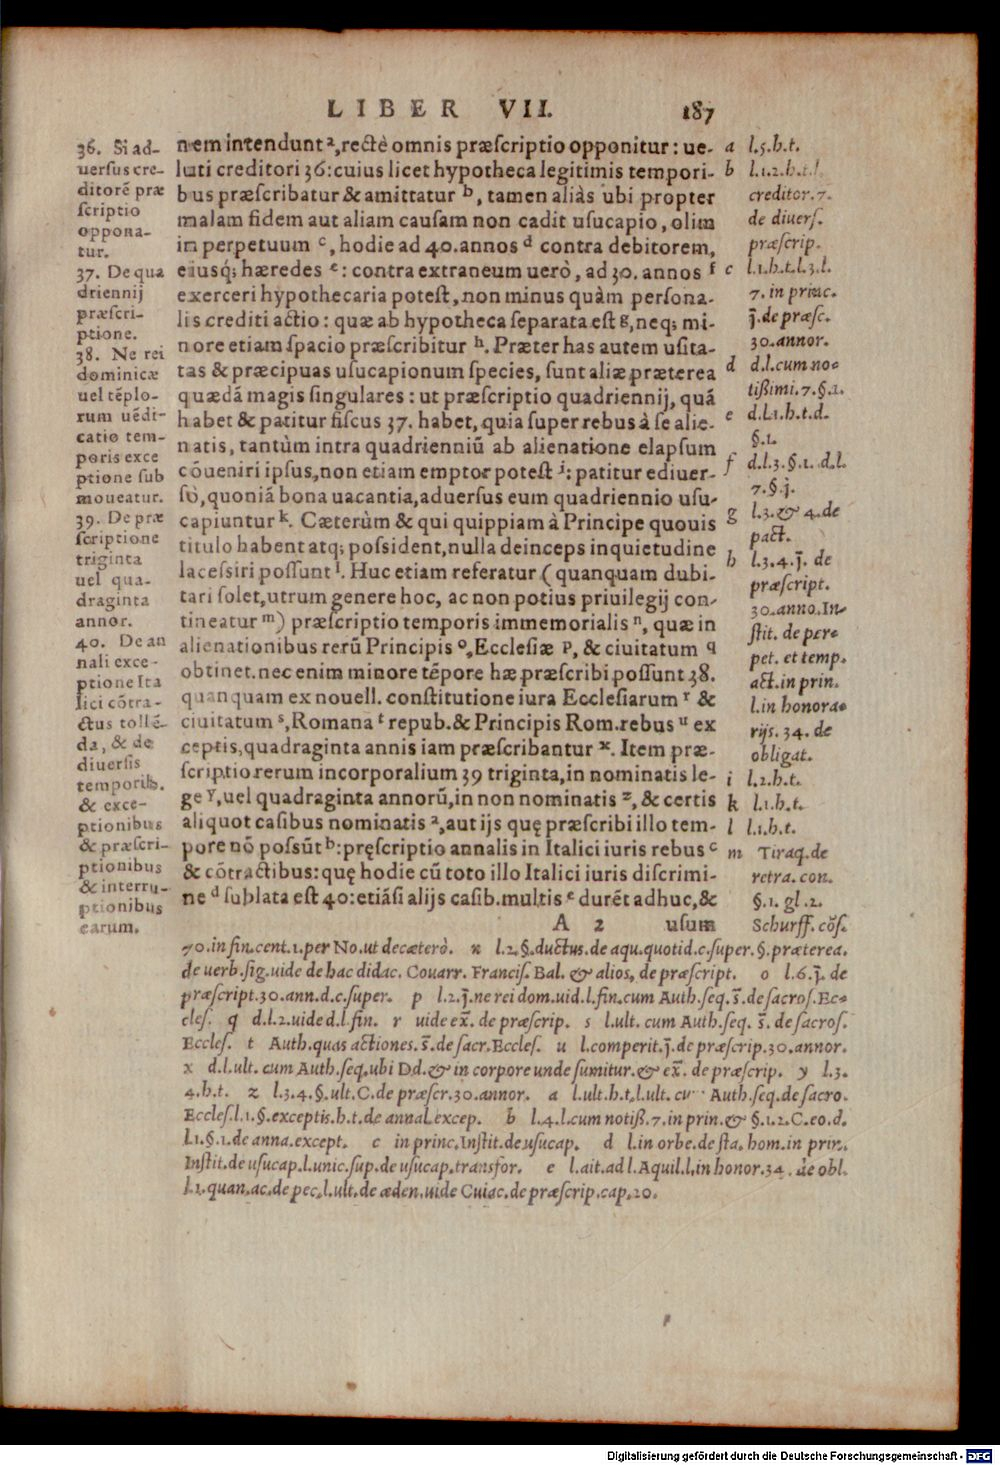 LIBER VII. 187
36. Si ad-
uersus cre-
ditorē præ
scriptio
oppona-
tur.
37. De qua
driennij
præscri-
ptione.
38. Ne rei
dominicæ
uel tēplo-
rum uēdi-
catio tem-
poris exce
ptione sub
moueatur.
39. De præ
scriptione
triginta
uel qua-
draginta
annor.
40. De an
nali exce-
ptione Ita
lici cōtra-
ctus tollē-
da, & de
diuersis
temporib.
& exce-
ptionibus
& præscri-
ptionibus
& interru-
ptionibus
earum.
nem intendunt a, rectè omnis præscriptio opponitur: ue-
luti creditori 36: cuius licet hypotheca legitimis tempori-
bus præscribatur & amittatur b, tamen aliàs ubi propter
malam fidem aut aliam causam non cadit usucapio, olim
in perpetuum c, hodie ad 40. annos d contra debitorem,
eiusq; hæredes e: contra extraneum uerò, ad 30. annos f
exerceri hypothecaria potest, non minus quàm persona-
lis crediti actio: quæ ab hypotheca separata est g, neq; mi-
nore etiam spacio præscribitur h. Præter has autem usita-
tas & præcipuas usucapionum species, sunt aliæ præterea
quædā magis singulares: ut præscriptio quadriennij, quā
habet & patitur fiscus 37. habet, quia super rebus à se alie-
natis, tantùm intra quadrienniū ab alienatione elapsum
cōueniri ipsus, non etiam emptor potest i: patitur ediuer-
sò, quoniā bona uacantia, aduersus eum quadriennio usu-
capiuntur k. Cæterùm & qui quippiam à Principe quouis
titulo habent atq; possident, nulla deinceps inquietudine
lacessiri possunt l. Huc etiam referatur (quanquam dubi-
tari solet, utrum genere hoc, ac non potius priuilegij con-
tineatur m) præscriptio temporis immemorialis n, quæ in
alienationibus rerū Principis o, Ecclesiæ p, & ciuitatum q
obtinet. nec enim minore tēpore hæ præscribi possunt 38.
quanquam ex nouell. constitutione iura Ecclesiarum r &
ciuitatum s, Romana t repub. & Principis Rom. rebus u ex
ceptis, quadraginta annis iam præscribantur x. Item præ-
scriptio rerum incorporalium 39 triginta, in nominatis le-
ge y, uel quadraginta annorū, in non nominatis z, & certis
aliquot casibus nominatis a, aut ijs quę præscribi illo tem-
pore nō possūt b: pręscriptio annalis in Italici iuris rebus c
& cōtractibus: quę hodie cū toto illo Italici iuris discrimi-
ne d sublata est 40: etiāsi alijs casib. multis e durēt adhuc, &
A 2 usum
a l.5.h.t.
b l.1.2.h.t.l.
creditor.7.
de diuers.
præscrip.
c l.1.h.t.l.3.l.
7. in princ.
j̄.de præsc.
30.annor.
d d.l.cum no-
tißimi.7.§.1.
e d.l.1.h.t.d.
§.1.
f d.l.3.§.1.d.l.
7.§.j.
g l.3.& 4.de
pact.
h l.3.4.j̄. de
præscript.
30.anno.In-
stit. de per-
pet. et temp.
act.in prin.
l.in honora-
rijs.34. de
obligat.
i l.2.h.t.
k l.1.h.t.
l l.1.h.t.
m Tiraq.de
retra. con.
§.1. gl.2.
Schurff. cōs.
70.in fin.cent.1.per No.ut decæterò. n l.2.§.ductus.de aqu.quotid.c.super.§.præterea.
de uerb.sig.uide de hac didac. Couarr. Francis. Bal. & alios, de præscript. o l.6.j̄. de
præscript.30.ann.d.c.super. p l.2.j̄.ne rei dom.uid.l.fin.cum Auth.seq.s̄.de sacros.Ec-
cles. q d.l.2.uide d.l.fin. r uide ex̄. de præscrip. s l.ult. cum Auth.seq. s̄. de sacros.
Eccles. t Auth.quas actiones.s̄.de sacr.Eccles. u l.comperit.j̄.de præscrip.30.annor.
x d.l.ult. cum Auth.seq.ubi Dd.& in corpore unde sumitur.& ex̄. de præscrip. y l.3.
4.h.t. z l.3.4.§.ult.C.de præscr.30.annor. a l.ult.h.t.l.ult. Auth.seq.de sacro.
Eccles.l.1.§.exceptis.h.t.de annal.excep. b l.4.l.cum notiß.7.in prin.& §.1.2.C.eo.d.
l.1.§.1.de anna.except. c in princ.Instit.de usucap. d l.in orbe.de sta.hom.in prin.
Instit.de usucap.l.unic.sup.de usucap.transfor. e l.ait.ad l.Aquil.l.in honor.34.de obl.
l.1.quan.ac.de pec.l.ult.de æden.uide Cuiac.de præscrip.cap.20.
Digitalisierung gefördert durch die Deutsche Forschungsgemeinschaft - DFG